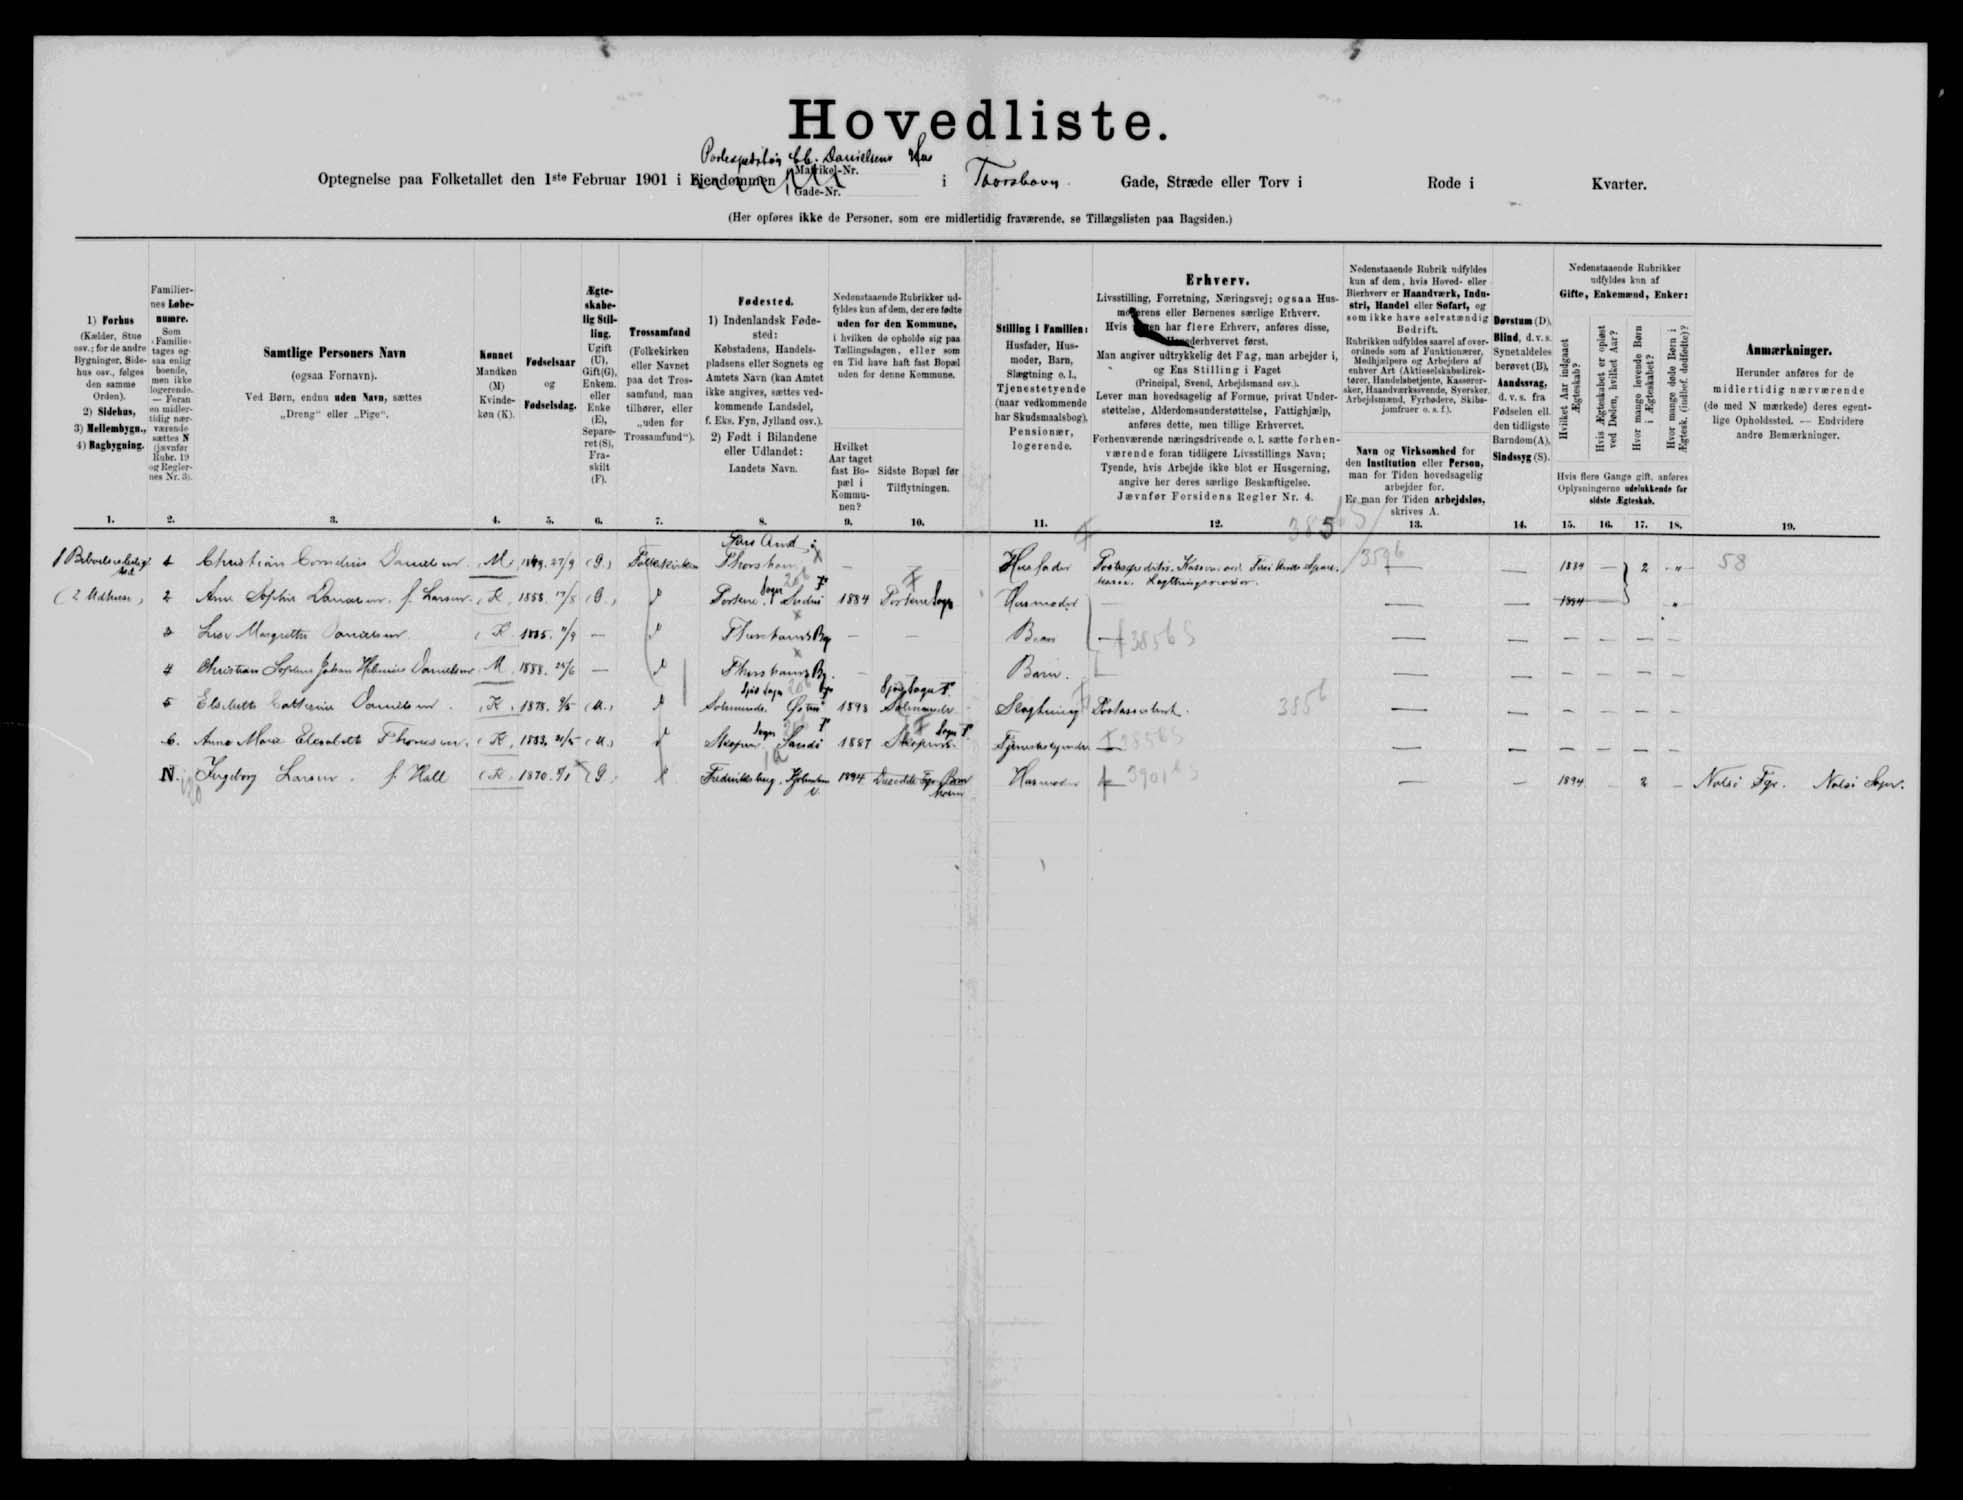 Hovedliste.
Postexpeditør Chr. Danielsens Hus
Optegnelse paa Folketallet den 1ste Februar 1901 i Ejendommen Matrikel-Nr. Gade-Nr. i Thorshavn Gade, Stræde eller Torv i Rode i Kvarter.
(Her opføres ikke de Personer, som ere midlertidig fraværende, se Tillægslisten paa Bagsiden.)
1) Forhus
(Kælder, Stue
osv.; for de andre
Bygninger, Side-
hus osv., følges
den samme
Orden).
2) Sidehus,
3) Mellembygn.,
4) Bagbygning.
1.
Familier-
nes Løbe-
numre.
Som
Familie
tages og-
saa enlig
boende,
men ikke
logerende.
— Foran
en midler-
tidig nær-
værende
sættes N
(jævnfør
Rubr. 19
og Regler-
nes Nr. 3).
2.
Samtlige Personers Navn
(ogsaa Fornavn).
Ved Børn, endnu uden Navn, sættes
„Dreng“ eller „Pige“.
3.
Kønnet
Mandkøn
(M)
Kvinde-
køn (K).
4.
Fødselsaar
og
Fødselsdag.
5.
Ægte-
skabe-
lig Stil-
ling.
Ugift
(U),
Gift(G),
Enkem.
eller
Enke
(E),
Separe-
ret (S),
Fra-
skilt
(F).
6.
Trossamfund
(Folkekirken
eller Navnet
paa det Tros-
samfund, man
tilhører, eller
„uden for
Trossamfund“).
7.
Fødested.
1) Indenlandsk Føde-
sted:
Købstadens, Handels-
pladsens eller Sognets og
Amtets Navn (kan Amtet
ikke angives, sættes ved-
kommende Landsdel,
f. Eks. Fyn, Jylland osv.).
2) Født i Bilandene
eller Udlandet:
Landets Navn.
8.
Nedenstaaende Rubrikker ud-
fyldes kun af dem, der ere fødte
uden for den Kommune,
i hvilken de opholde sig paa
Tællingsdagen, eller som
en Tid have haft fast Bopæl
uden for denne Kommune.
Hvilket
Aar taget
fast Bo-
pæl i
Kommu-
nen?
9.
Sidste Bopæl før
Tilflytningen.
10.
Stilling i Familien:
Husfader, Hus-
moder, Barn,
Slægtning o. l.,
Tjenestetyende
(naar vedkommende
har Skudsmaalsbog),
Pensionær,
logerende.
11.
Erhverv.
Livsstilling, Forretning, Næringsvej; ogsaa Hus-
moderens eller Børnenes særlige Erhverv.
Hvis nogen har flere Erhverv, anføres disse,
Hovederhvervet først.
Man angiver udtrykkelig det Fag, man arbejder i,
og Ens Stilling i Faget
(Principal, Svend, Arbejdsmand osv.).
Lever man hovedsagelig af Formue, privat Under-
støttelse, Alderdomsunderstøttelse, Fattighjælp,
anføres dette, men tillige Erhvervet.
Forhenværende næringsdrivende o. l. sætte forhen-
værende foran tidligere Livsstillings Navn;
Tyende, hvis Arbejde ikke blot er Husgerning,
angive her deres særlige Beskæftigelse.
Jævnfør Forsidens Regler Nr. 4.
12.
Nedenstaaende Rubrik udfyldes
kun af dem, hvis Hoved- eller
Bierhverv er Haandværk, Indu-
stri, Handel eller Søfart, og
som ikke have selvstændig
Bedrift.
Rubrikken udfyldes saavel af over-
ordnede som af Funktionærer,
Medhjælpere og Arbejdere af
enhver Art (Aktieselskabsdirek-
tører, Handelsbetjente, Kasserer-
sker, Haandværkssvende, Syersker,
Arbejdsmænd, Fyrbødere, Skibs-
jomfruer o. s. f.).
Navn og Virksomhed for
den Institution eller Person,
man for Tiden hovedsagelig
arbejder for.
Er man for Tiden arbejdsløs,
skrives A.
13.
Døvstum (D),
Blind, d. v. s.
Synet aldeles
berøvet (B),
Aandssvag,
d. v. s. fra
Fødselen ell.
den tidligste
Barndom (A),
Sindssyg (S).
14.
Nedenstaaende Rubrikker
udfyldes kun af
Gifte, Enkemænd, Enker:
Hvilket Aar indgaaet Ægteskab?
Hvis Ægteskabet er opløst ved Døden, hvilket Aar?
Hvor mange levende Børn i Ægteskabet?
Hvor mange døde Børn i Ægtesk. (indbef. dødfødte)?
Hvis flere Gange gift, anføres
Oplysningerne udelukkende for
sidste Ægteskab.
15. 16. 17. 18.
Anmærkninger.
Herunder anføres for de
midlertidig nærværende
(de med N mærkede) deres egent-
lige Opholdssted. — Endvidere
andre Bemærkninger.
19.
1 Christian Cornelius Danielsen M 1849 27/9 (G.) Folkekirken Thorshavn — — Husfader Postexpeditør — — 1884 — 2 58
(2 Udhuse) 2 Anne Sophie Danielsen f. Larsen K 1858 17/8 (G.) Porkere Sogn Suderø 1884 Porkere Sogn Husmoder — — — 1884
3 Margrethe Danielsen K 1885 11/9 — Thorshavns By — — Barn — 3856 S
4 Christian Sophus Johan Danielsen M 1888 24/6 — Thorshavns By — Barn
5 Elsebeth Cathrine Danielsen K 1878 9/5 (U.) Solmunde Østerø 1898 Solmunde Slægtning Postassistent 3856
6. Anne Marie Elisabeth Thomsen K 1883 21/5 (U.) Skopun Sogn Sandø 1887 Skopun Sogn Tjenestetyende 3856 S
N. Ingeborg Larsen f. Hall K 1870 (G.) Frederiksberg 1894 Husmoder 3901 S — — 1894 2 — Nolsø Fyr. Nolsø Sogn.